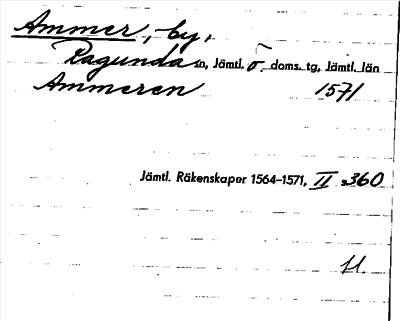 Ammer, by,
Ragunda sn, Jämtl. ö. doms. tg, Jämtl. län
Ammeren 1571
Jämtl. Räkenskaper 1564–1571, II s. 360